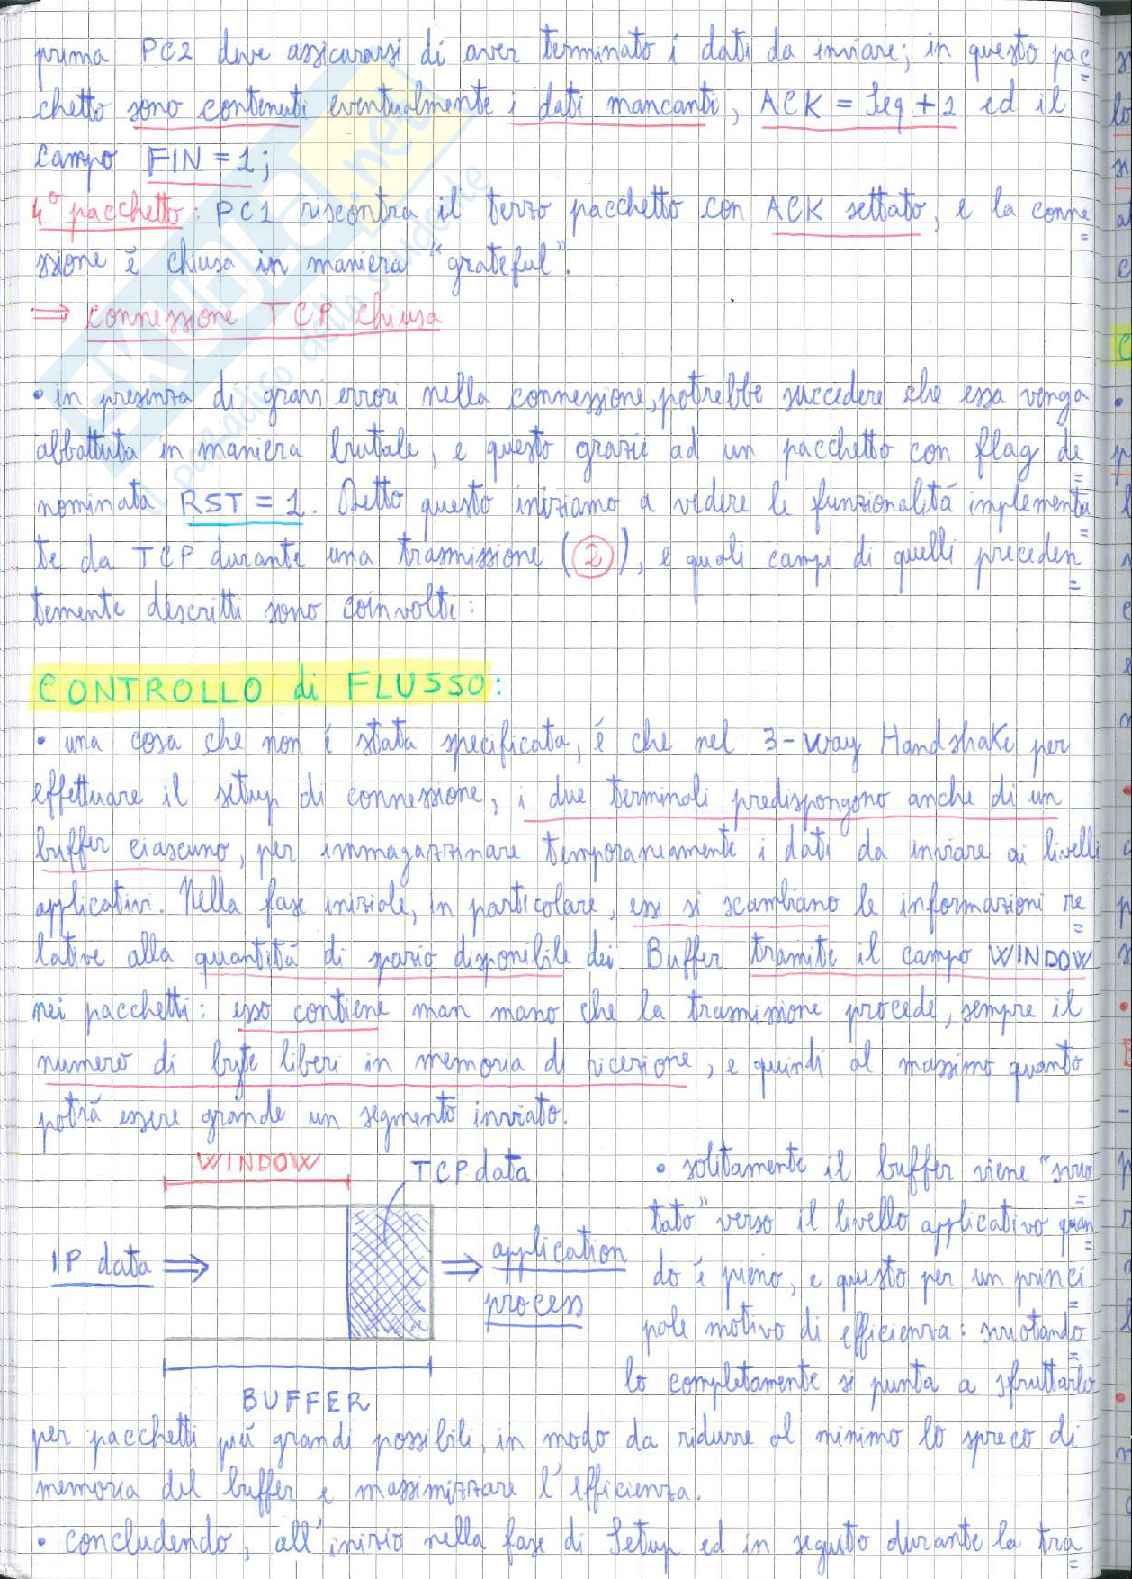 prima PC2 deve assicurarsi di aver terminato i dati da inviare; in questo pac
chetto sono contenuti eventualmente i dati mancanti, ACK = Seq + 1 ed il
campo FIN = 1;
4° pacchetto: PC1 riscontra il terzo pacchetto con ACK settato, e la conne
ssione è chiusa in maniera "grateful".
⇒ connessione TCP chiusa
• in presenza di gravi errori nella connessione, potrebbe succedere che essa venga
abbattuta in maniera brutale, e questo grazie ad un pacchetto con flag de
nominata RST = 1. Detto questo iniziamo a vedere le funzionalità implementa
te da TCP durante una trasmissione (2), e quali campi di quelli preceden
temente descritti sono coinvolti:
CONTROLLO di FLUSSO:
• una cosa che non è stata specificata, è che nel 3-way Handshake per
effettuare il setup di connessione, i due terminali predispongono anche di un
buffer ciascuno, per immagazzinare temporaneamente i dati da inviare ai livelli
applicativi. Nella fase iniziale, in particolare, essi si scambiano le informazioni re
lative alla quantità di spazio disponibile dei Buffer tramite il campo WINDOW
nei pacchetti: esso contiene man mano che la trasmissione procede, sempre il
numero di byte liberi in memoria di ricezione, e quindi al massimo quanto
potrà essere grande un segmento inviato.
WINDOW
TCP data
IP data ⇒
⇒ application
process
BUFFER
• solitamente il buffer viene "svuo
tato" verso il livello applicativo quan
do è pieno, e questo per un princi
pale motivo di efficienza: svuotando
lo completamente si punta a sfruttarlo
per pacchetti più grandi possibili, in modo da ridurre al minimo lo spreco di
memoria del buffer e massimizzare l'efficienza.
• concludendo, all'inizio nella fase di Setup ed in seguito durante la tra